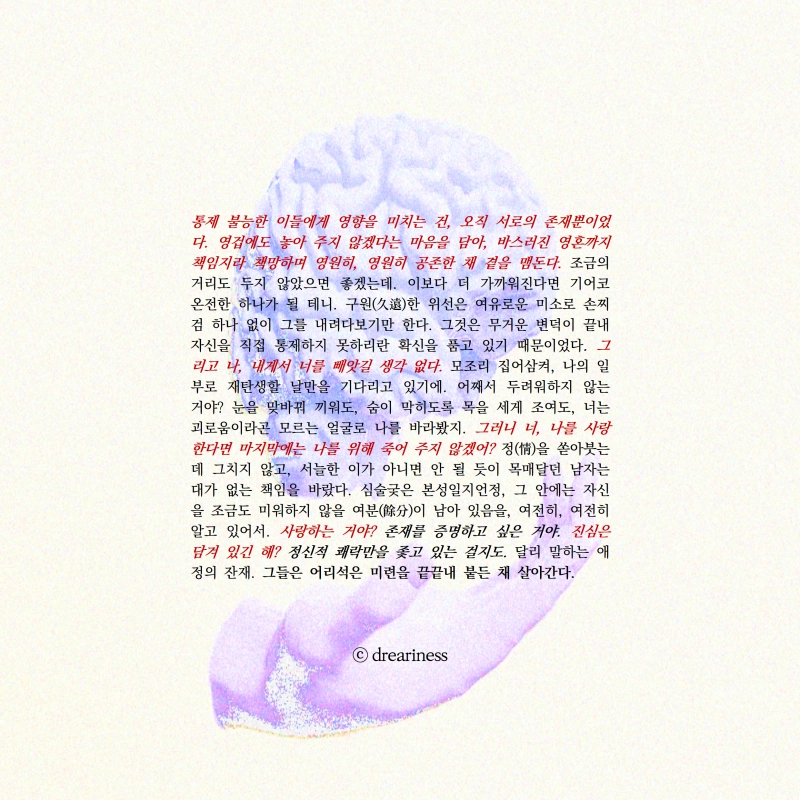 통제 불능한 이들에게 영향을 미치는 건, 오직 서로의 존재뿐이었
다. 영겁에도 놓아 주지 않겠다는 마음을 담아, 바스러진 영혼까지
책임지라 책망하며 영원히, 영원히 공존한 채 곁을 맴돈다. 조금의
거리도 두지 않았으면 좋겠는데. 이보다 더 가까워진다면 기어코
온전한 하나가 될 테니. 구원(久遠)한 위선은 여유로운 미소로 손찌
검 하나 없이 그를 내려다보기만 한다. 그것은 무거운 변덕이 끝내
자신을 직접 통제하지 못하리란 확신을 품고 있기 때문이었다. 그
리고 나, 내게서 너를 빼앗길 생각 없다. 모조리 집어삼켜, 나의 일
부로 재탄생할 날만을 기다리고 있기에. 어째서 두려워하지 않는
거야? 눈을 맞바꿔 끼워도, 숨이 막히도록 목을 세게 조여도, 너는
괴로움이라곤 모르는 얼굴로 나를 바라봤지. 그러니 너, 나를 사랑
한다면 마지막에는 나를 위해 죽어 주지 않겠어? 정(情)을 쏟아붓는
데 그치지 않고, 서늘한 이가 아니면 안 될 듯이 목매달던 남자는
대가 없는 책임을 바랐다. 심술궂은 본성일지언정, 그 안에는 자신
을 조금도 미워하지 않을 여분(餘分)이 남아 있음을, 여전히, 여전히
알고 있어서. 사랑하는 거야? 존재를 증명하고 싶은 거야. 진심은
담겨 있긴 해? 정신적 쾌락만을 좇고 있는 걸지도. 달리 말하는 애
정의 잔재. 그들은 어리석은 미련을 끝끝내 붙든 채 살아간다.
ⓒ dreariness